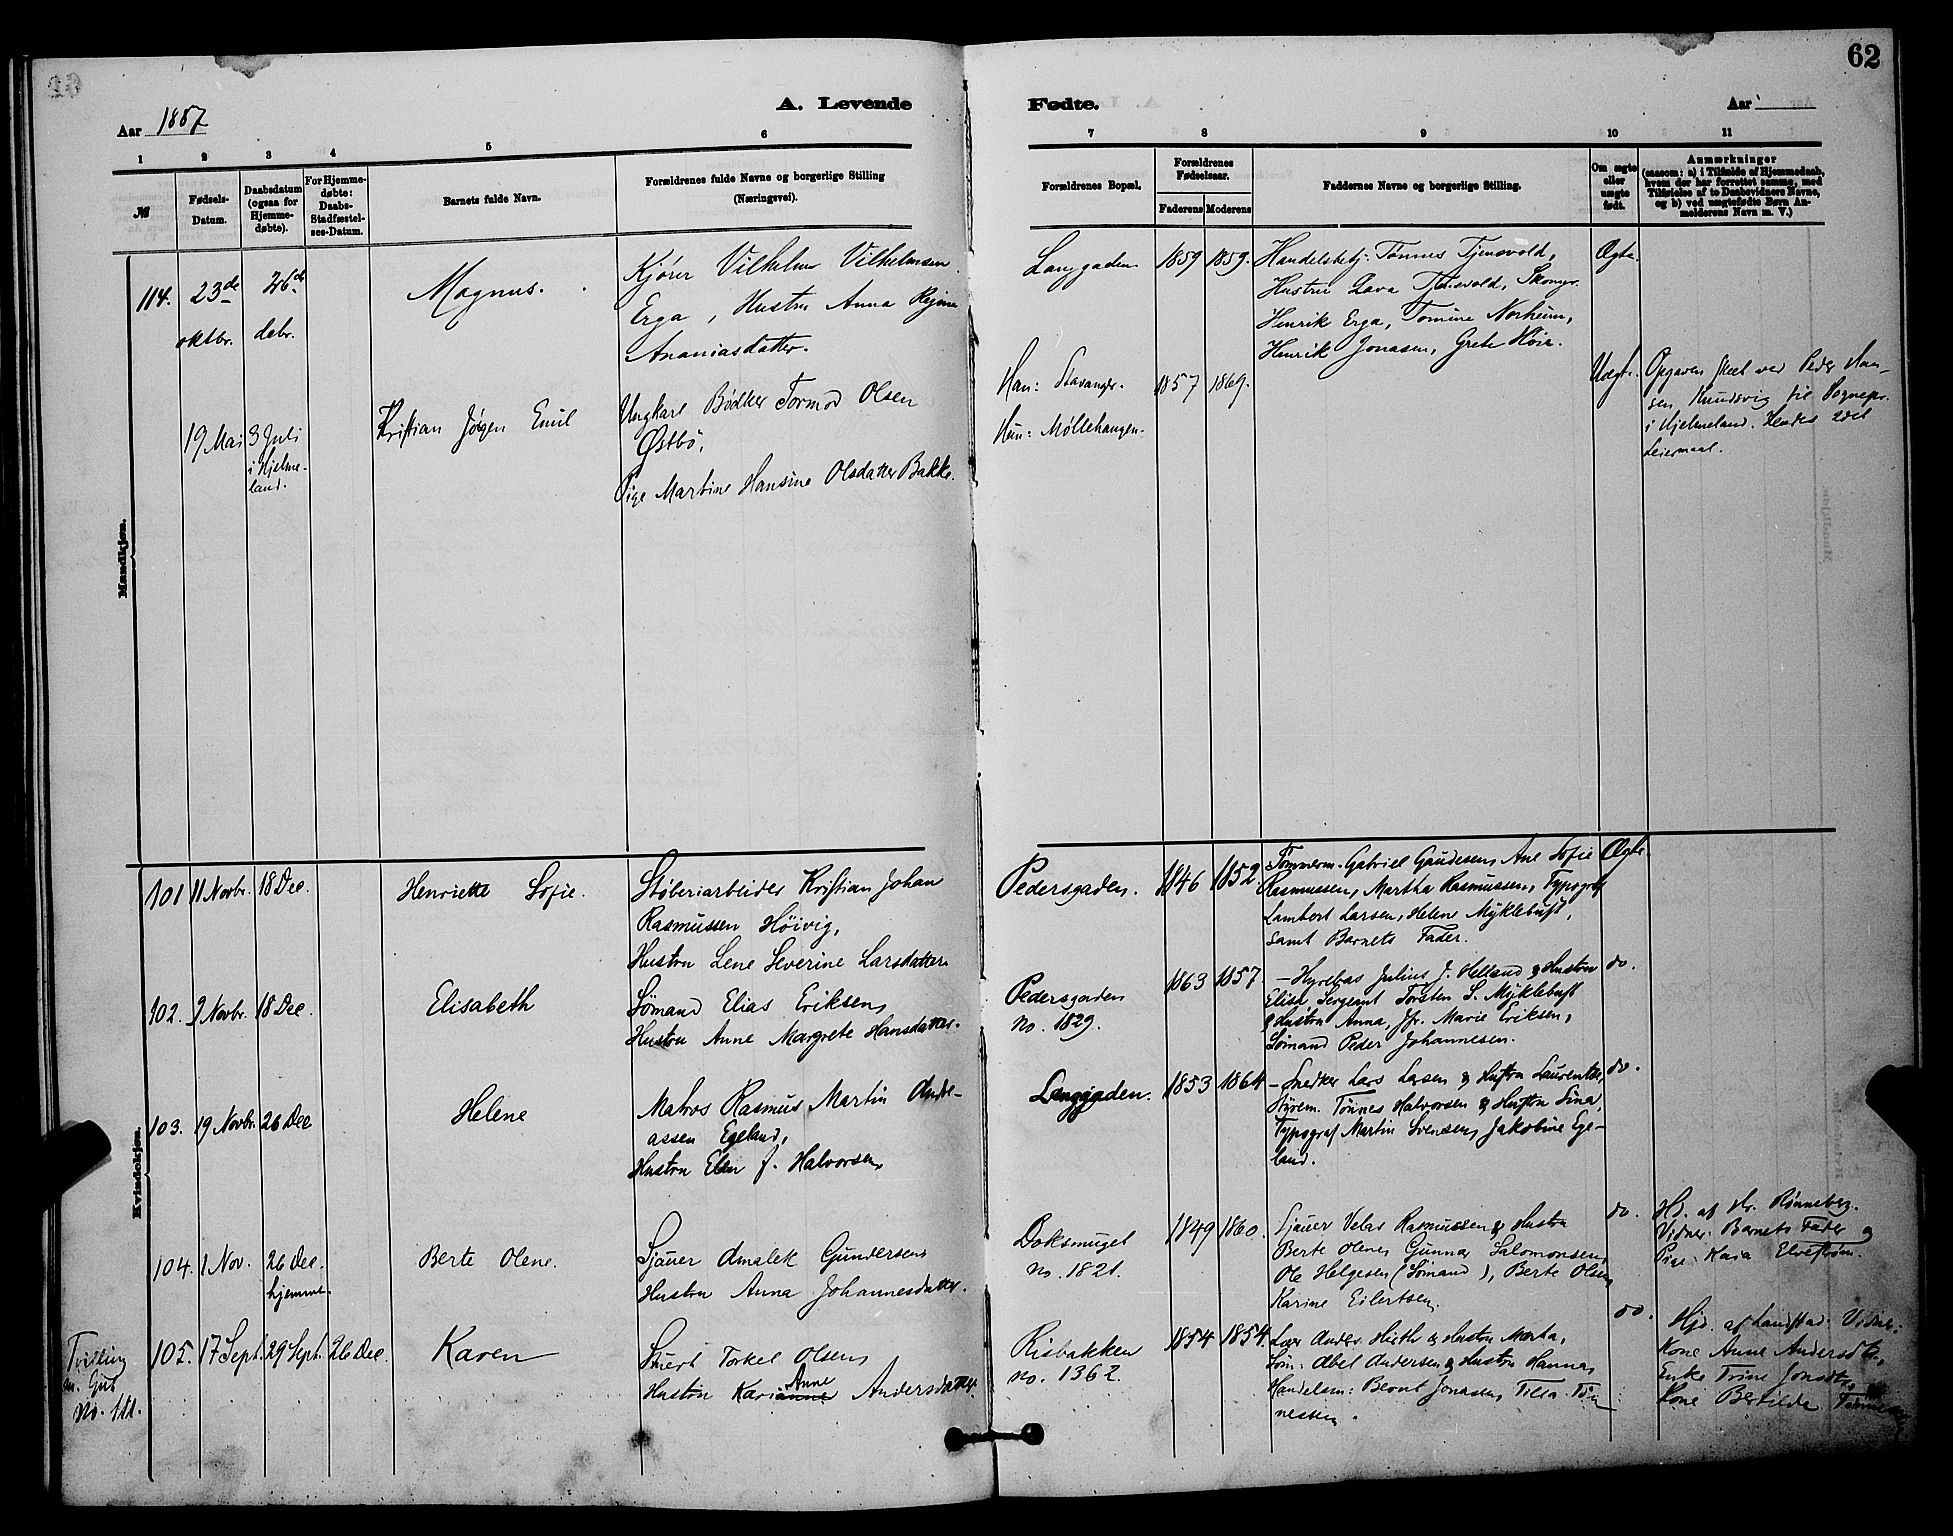 62
A. Levende
Fødte.
Aar 1887
Aar
1 2 3 4 5 6 7 8 9 10 11
№
Fødsels-
Datum.
Daabsdatum
(ogsaa for
Hjemme-
døbte).
For Hjemme-
døbte:
Daabs-
Stadfæstel-
ses-Datum.
Barnets fulde Navn.
Forældrenes fulde Navne og borgerlige Stilling
(Næringsvei).
Forældrenes Bopæl.
Forældrenes
Fødselsaar.
Faderens Moderens
Faddernes Navne og borgerlige Stilling.
Om ægte
eller
uægte
født.
Anmærkninger
(saasom: a) i Tilfælde af Hjemmedaab,
hvem der har forrettet samme, med
Tilføielse af to Daabsvidners Navne,
og b) ved uægtefødte Børn An-
melderens Navn m. V.)
Mandkjøn.
114.
23de
oktbr.
26de
debr.
Magnus.
Kjører Vilhelm Vilhelmsen
Erga, Hustru Anna Regine
Ananiasdatter.
Langgaden
1859
1859.
Handelsbetj. Tønnes Tjensvold,
Hustru Lava Tjensvold, Skomgr.
Henrik Erga, Tomine Norheim,
Henrik Jonasen, Grete Høie.
Ægte.
19 Mai
3 Juli
i Hjelme-
land.
Kristian Jörgen Emil
Ungkarl Bødker Tormod Olsen
Østbö,
Pige Martine Hansine Olsdatter Bakke.
Han: Stavanger.
Hun: Møllehaugen.
1857
1869.
Uægte.
Opgaven skeet ved Peder Han-
sen Knudsvig til Sognepr.
i Hjelmeland. Hendes 2det
Leiermaal.
Kvindekjøn.
101
11 Novbr.
18 Dec.
Henriette Sofie.
Støberiarbeider Kristian Johan
Rasmussen Höivig,
Hustru Lene Severine Larsdatter
Pedersgaden.
1846
1852.
Tømmerm. Gabriel Gaudesen, Ane Sofie
Rasmussen, Martha Rasmussen, Typograf
Lambert Larsen, Helene Myklebust,
samt Barnets Fader.
Ægte.
102.
9 Novbr.
18 Dec.
Elisabeth
Sømand Elias Eriksen,
Hustru Anne Margrete Hansdatter.
Pedersgaden
No. 1829.
1863
1857
- Hyrebas Julius J. Helland & Hustru
Elisa, Sergeant Torsten S. Myklebust
& Hustru Anna, Jfr. Marie Eriksen,
Sømand Peder Johannesen.
do.
103.
19 Novbr.
26 Dec
Helene
Matros Rasmus Martin Andre-
assen Egeland,
Hustru Elen J. Halvorsen,
Langgaden.
1853
1864
- Snedker Lars Larsen & Hustru Laurentze,
Styrm. Tønnes Halvorsen & Hustru Sina,
Typograf Martin Svendsen, Jakobine Ege-
land.
do.
104.
1 Nov.
26 Dec.
hjemme.
Berte Olene.
Sjauer Amalek Gundersen
Hustru Anna Johannesdatter.
Doksmuget
No. 1821.
1849
1860.
Sjauer Velas Rasmussen & Hustru
Berte Olene, Gunnar Salomonsen,
Ole Helgesen (Sømand), Berte Olsen,
Karine Eilertsen.
do.
Hd. af Hr. Rønneberg.
Vidner: Barnets Fader og
Pige Kaia Elvestrøm.
Tvilling
m. Gut
No. 111.
105.
17 Sept.
29 Sept.
26 Dec.
Karen
Stuert Torkel Olsen,
Hustru Karianne Anne Andersdatter.
Risbakken
no. 1362.
1854
1854.
Anders Hieth & Hustru Marta,
Søm: Abel Andersen & Hustru Hanna,
Handelsm: Berent Jonassen, Tilla Tön
nessen.
do.
Hjd. af Vidner:
Kone Anne Andersdtr.,
Enke Trine Jonsdtr.,
Kone Bertilde